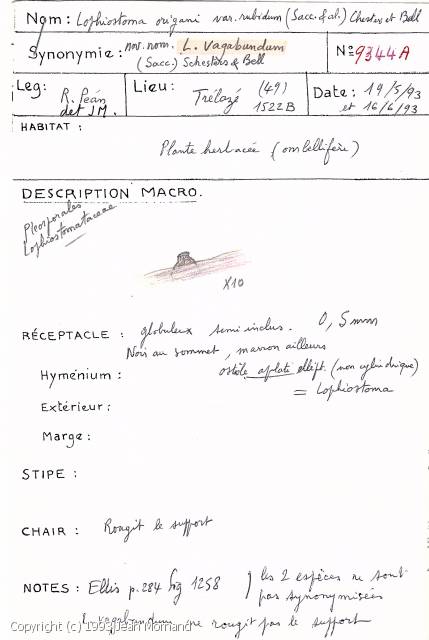 Nom: Lophiostoma origani var. rubidum (Sacc. & al.) Chesters et Bell
Synonymie: nov. nom. L. vagabundum
(Sacc.) Schesters & Bell
N° 9344A
Leg: R. Péan
det JM.
Lieu: Trélazé (49)
1522B
Date: 19/5/93
et 16/6/93
HABITAT :
Plante herbacée (ombellifère)
DESCRIPTION MACRO.
Pleosporales
Lophiostomataceae
X10
RÉCEPTACLE : globuleux semi inclus. 0,5mm
Noir au sommet, marron ailleurs
Hyménium : ostiole aplati ellipt. (non cylindrique)
= Lophiostoma
Extérieur :
Marge :
STIPE :
CHAIR : Rougit le support
NOTES : Ellis p.284 fig 1258 } les 2 espèces ne sont
pas synonymisées
L. vagabundum ne rougit pas le support
Copyright (c) 1993 Jean Mornand